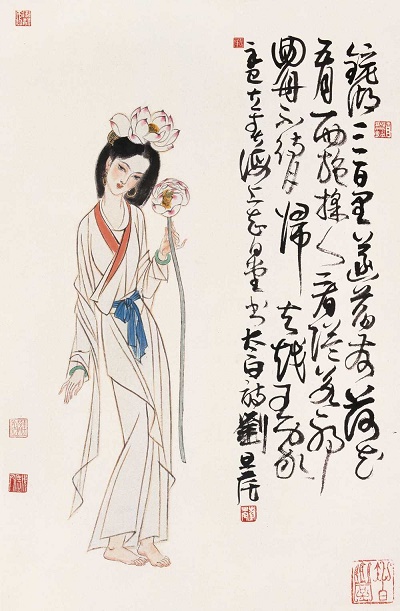 鏡湖三百里菡萏發荷花
五月西施採人看隘若耶
回舟不待月歸去越王家
海上書太白詩劉旦宅